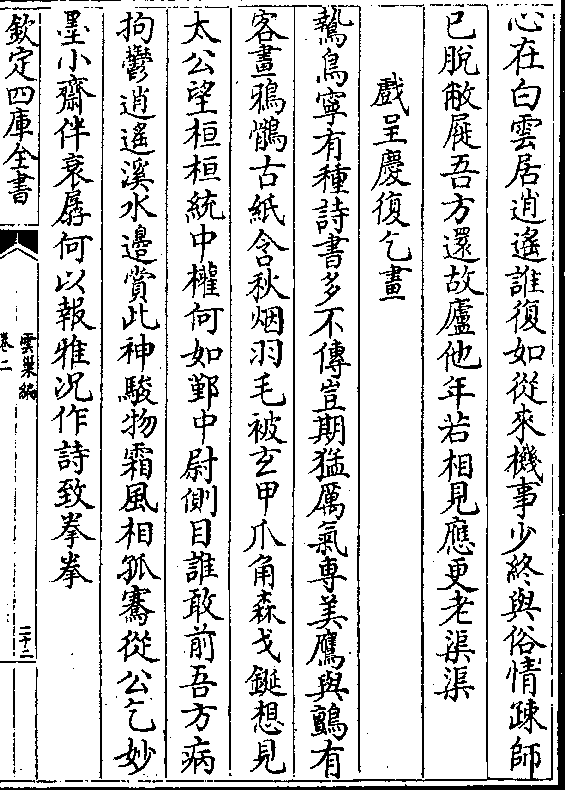 心在白雲居逍遙誰復如從來機事少終與俗情疎師
已脫敝屣吾方還故廬他年若相見應更老渠渠
戲呈慶復乞畫
鷙鳥寧有種詩書多不傳豈期猛厲氣專美鷹與鸇有
客畫鴉鶻古紙含秋烟羽毛被玄甲爪角森戈鋋想見
太公望桓桓統中權何如鄴中尉側目誰敢前吾方病
拘鬱逍遙溪水邉賞此神駿物霜風相孤騫從公乞妙
墨小齋伴衰孱何以報雅况作詩致拳拳
欽定四庫全書
雲巢編
卷二
二十二